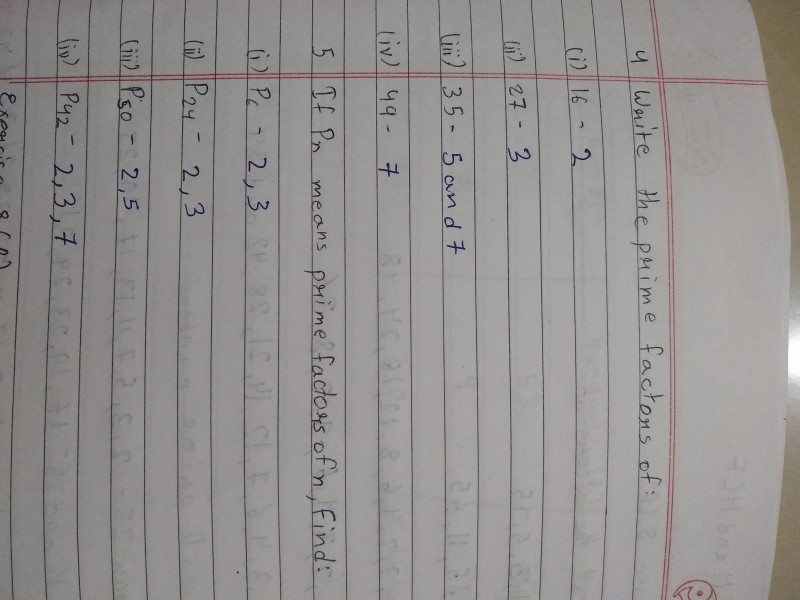 4 Write the prime factors of:
(i) 16 - 2
(ii) 27 - 3
(iii) 35 - 5 and 7
(iv) 49 - 7
5 If Pn means prime factors of n, find:
(i) P6 - 2, 3
(ii) P24 - 2, 3
(iii) P50 - 2, 5
(iv) P42 - 2, 3, 7
Exercise 8(A)